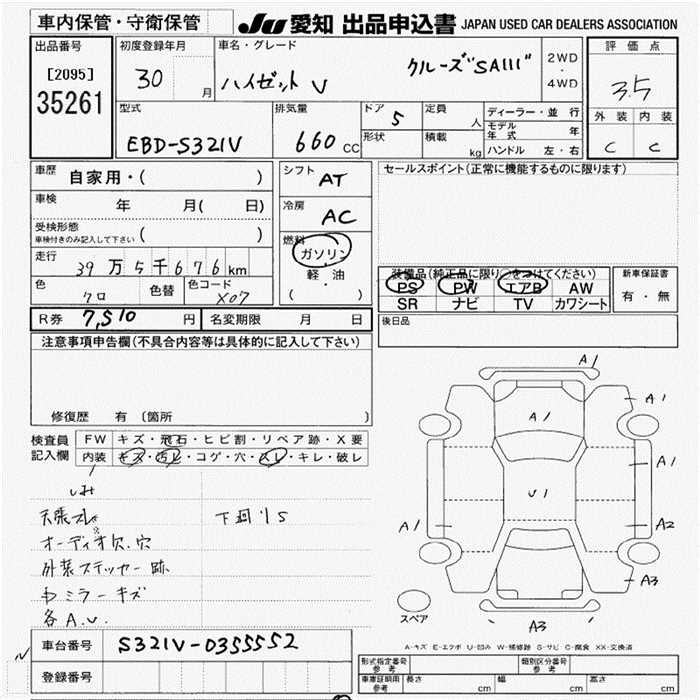 車内保管・守衛保管
JU 愛知 出品申込書 JAPAN USED CAR DEALERS ASSOCIATION
出品番号
[2095]
35261
初度登録年月
30 月
車名・グレード
ハイゼット V クルーズ"SAIII"
2WD
・
4WD
評価点
3.5
外装 内装
C C
型式
EBD-S321V
排気量
660 CC
ドア 5
形状
定員 人
積載 kg
ディーラー・並行
モデル年式 年
ハンドル 左・右
車歴 自家用・( )
車検 年 月( 日)
受検形態
車検付きのみ記入して下さい ( )
走行
39万5千676km
色 クロ 色替 色コード X07
シフト AT
冷房 AC
燃料
ガソリン
・
軽・油
( )
セールスポイント(正常に機能するものに限ります)
装備品(純正品に限り○をつけてください)
PS PW エアB AW
SR ナビ TV カワシート
新車保証書
有・無
R券 7,510 円 名変期限 月 日
後日品
注意事項申告欄(不具合内容等は具体的に記入して下さい)
修復歴 有〔箇所
検査員
記入欄
FW キズ・飛石・ヒビ割・リペア跡・X要
内装 キズ・汚レ・コゲ・穴・スレ・キレ・破レ
シミ
天張スレ
オーディオ欠.穴
外装ステッカー跡
わミラーキズ
各A.U.
下廻りS
A1
A1
A1
A1
U1
A1
A2
A3
A3
スペア
A-キズ E-エクボ U-凹み W-補修跡 S-サビ C-腐食 XX-交換済
車台番号 S321V-0355552
登録番号
型式指定番号
参考
類別区分番号
参考
車庫証明用
参考
長さ cm 幅 cm 高さ cm